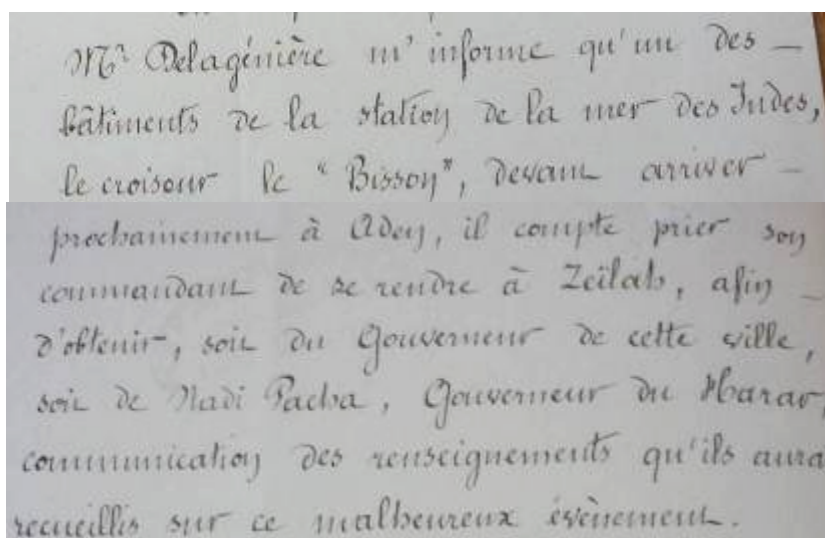 Mr Delagénière m'informe qu'un des —
bâtiments de la station de la mer des Indes,
le croiseur le "Bisson", devant arriver —
prochainement à Aden, il compte prier son
commandant de se rendre à Zeïlah, afin —
d'obtenir, soit du Gouverneur de cette ville,
soit de Nadi Pacha, Gouverneur du Harar,
communication des renseignements qu'ils aura
recueillis sur ce malheureux évènement.